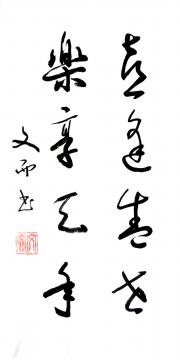 喜逢盛世
樂享天年
文而书